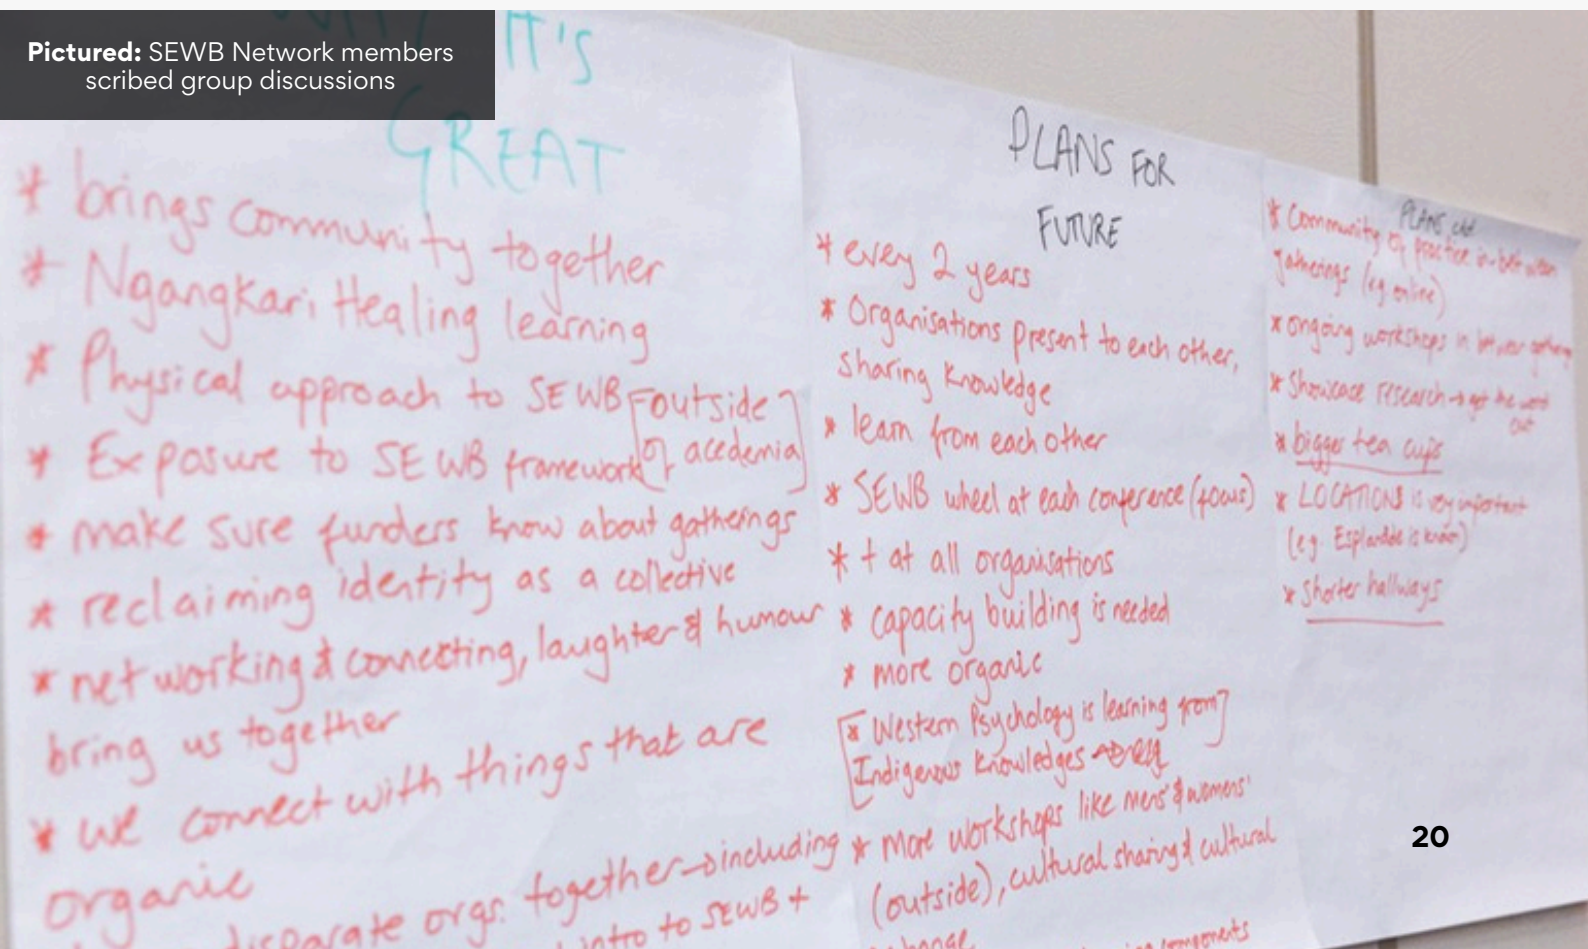 Pictured: SEWB Network members
scribed group discussions
IT'S
GREAT
* brings community together
* Ngangkari Healing learning
* Physical approach to SEWB
* Exposure to SEWB framework [outside
of acedemia]
* make sure funders know about gatherings
* reclaiming identity as a collective
* networking & connecting, laughter & humour
bring us together
* we connect with things that are
organic
disparate orgs. together→including
intro to SEWB +
PLANS FOR
FUTURE
* every 2 years
* Organisations present to each other,
sharing knowledge
* learn from each other
* SEWB wheel at each conference (focus)
* + at all organisations
* capacity building is needed
* more organic
[* Western Psychology is learning from]
Indigenous Knowledges
* more workshops like mens' & womens'
(outside), cultural sharing & cultural
components
PLANS
* Community of practice in-between
gatherings (eg. online)
* ongoing workshops in between
* Showcase research → get the word
out
* bigger tea cups
* LOCATIONS is very important
(e.g. Esplanade is known)
* shorter hallways
20